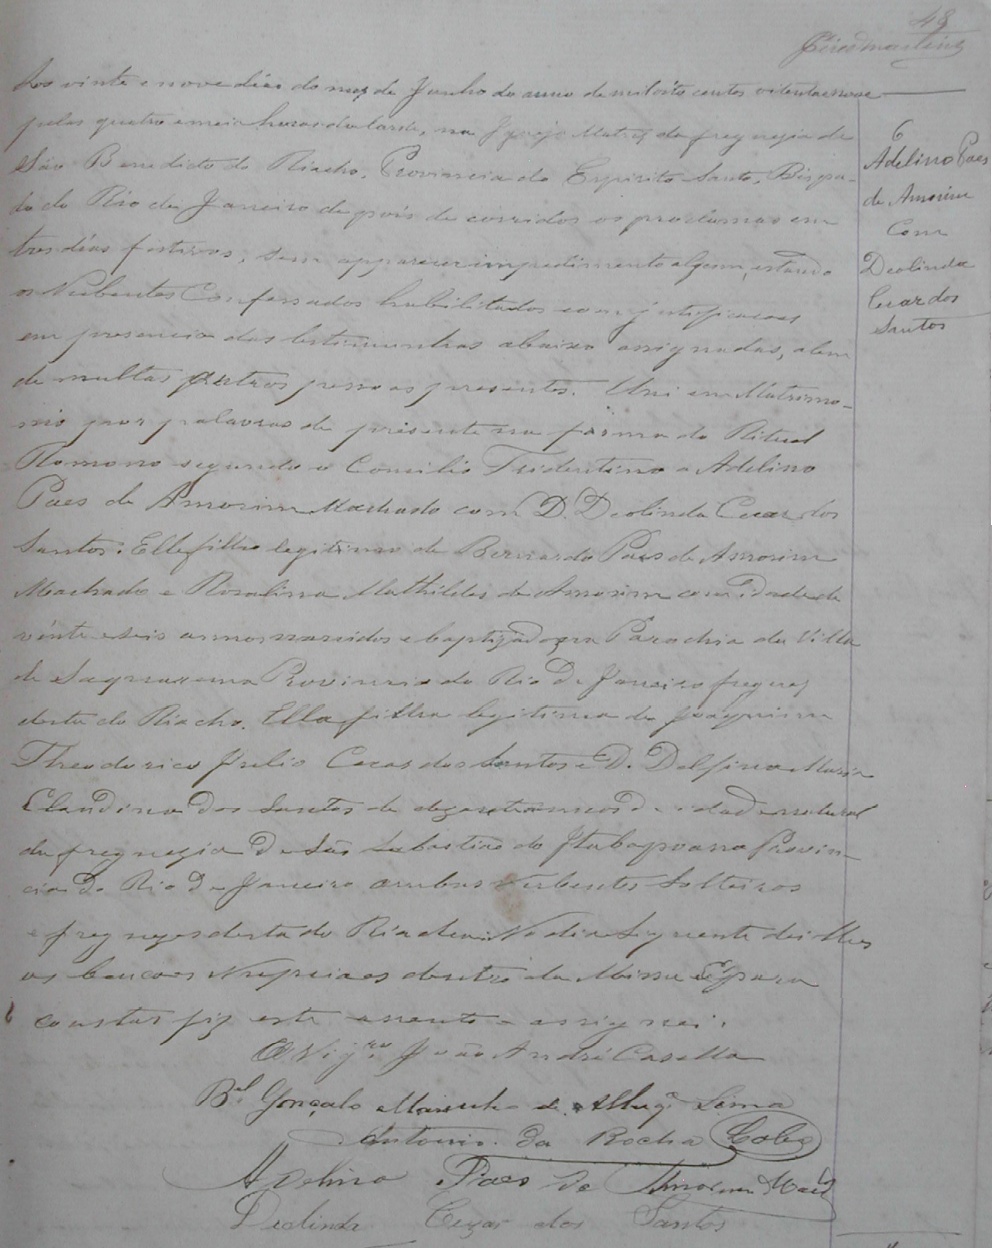 48
Aos vinte e nove dias do mez de Junho do anno de mil oito centos oitenta e nove
pelas quatro e meia horas da tarde, na Igreja Matriz da freguezia de
São Benedicto do Riacho, Provincia do Espirito Santo, Bispa-
do do Rio de Janeiro depois de corridos os proclamas em
tres dias festivos, sem apparecer impedimento algum, estando
os Nubentes Confessados habilitados com justificacoes
em presencia das testimunhas abaixo assignadas, alem
de muitas outras pessoas presentes. Uni em Matrimo-
nio por palavras de presente na forma do Ritual
Romano segundo o Concilio Tridentino a Adelino
Paes de Amorim Machado com D. Deolinda Cezar dos
Santos. Elle filho legitimo de Bernardo Paes de Amorim
Machado e Rosalina Mathildes de Amorim com idade de
vinte e seis annos nascidos e baptizado na Parochia da Villa
de Saquarema Provincia do Rio de Janeiro freguez
desta do Riacho. Ella filha legitima de Joaquim
Theodorico Julio Cezar dos Santos e D. Delfina Maria
Claudina dos Santos de dezesete annos de idade natural
da freguezia de São Sebastião do Itabapoana Provin-
cia do Rio de Janeiro ambos Nubentes Solteiros
e freguezes desta do Riacho. No dia Siguente dei lhes
as bencoes Nupciaes dentro da Missa E para
constar fiz este assento e assignei.
O Vigro. João André Casella
Bel. Gonçalo Marinho de Albuqe. Lima
Antonio da Rocha
Adelino Paes de Amorim Macdo
Deolinda Cezar dos Santos
6
Adelino Paes
de Amorim
Com
Deolinda
Cezar dos
Santos